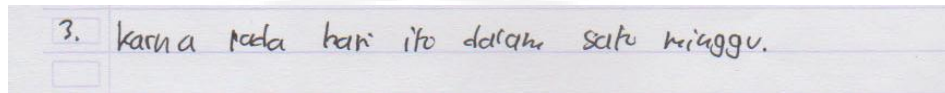 3. karna pada hari ito dalam satu minggu.